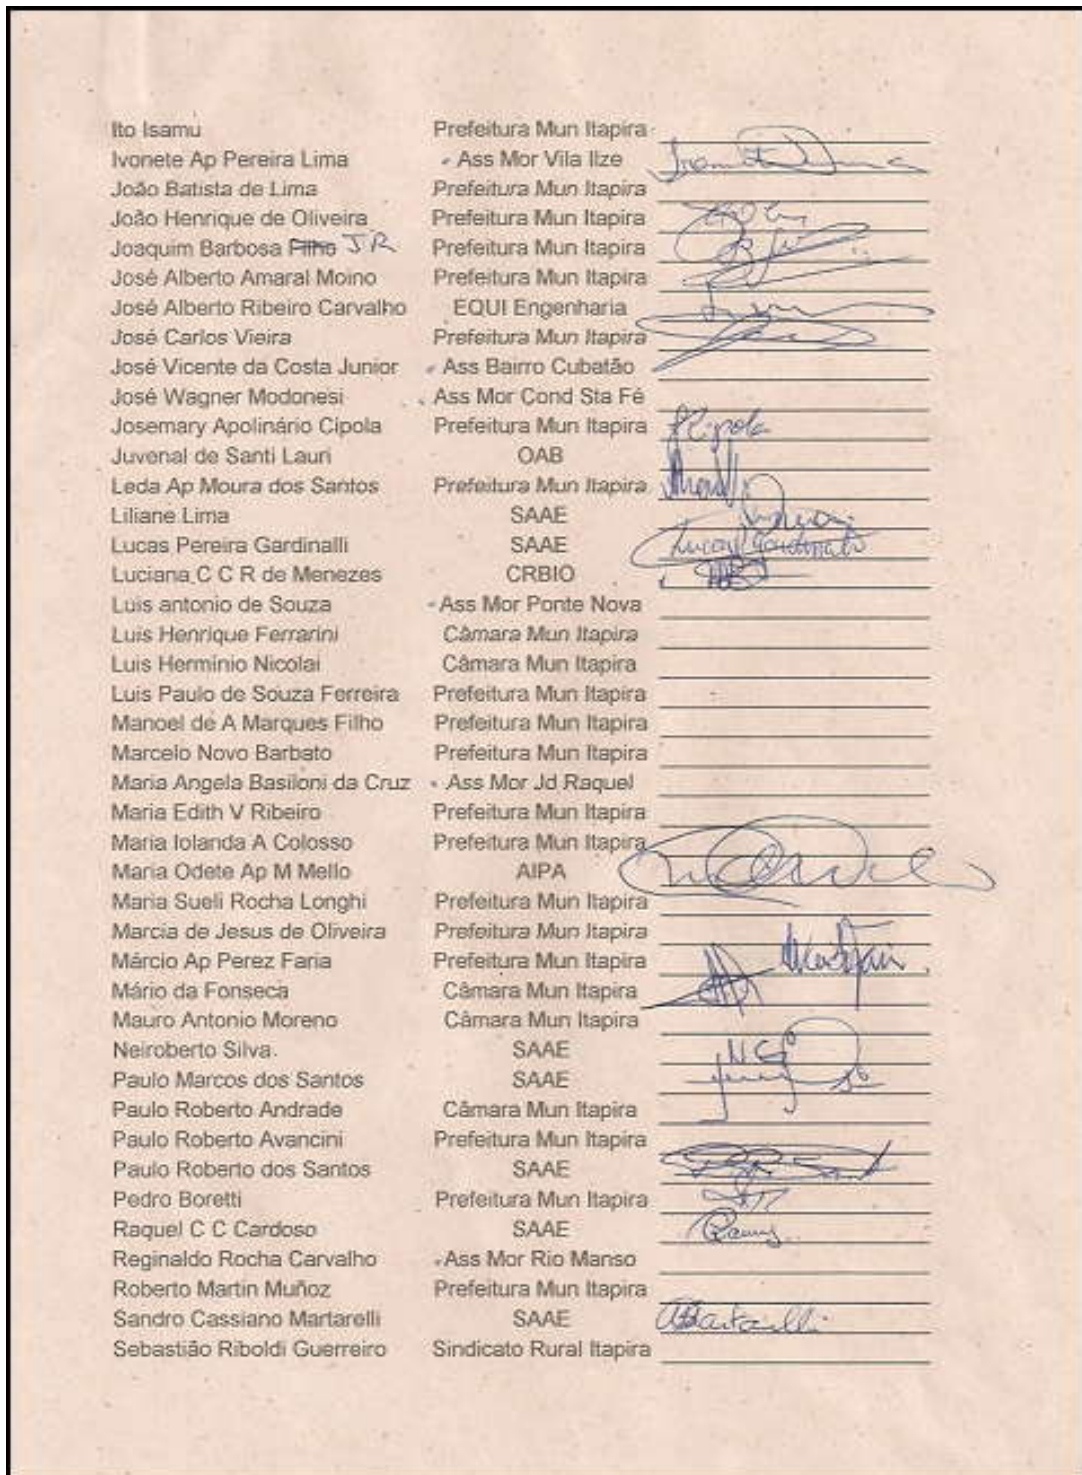 Ito Isamu Prefeitura Mun Itapira
Ivonete Ap Pereira Lima Ass Mor Vila Ilze
João Batista de Lima Prefeitura Mun Itapira
João Henrique de Oliveira Prefeitura Mun Itapira
Joaquim Barbosa Filho JR Prefeitura Mun Itapira
José Alberto Amaral Moino Prefeitura Mun Itapira
José Alberto Ribeiro Carvalho EQUI Engenharia
José Carlos Vieira Prefeitura Mun Itapira
José Vicente da Costa Junior Ass Bairro Cubatão
José Wagner Modonesi Ass Mor Cond Sta Fé
Josemary Apolinário Cipola Prefeitura Mun Itapira
Juvenal de Santi Lauri OAB
Leda Ap Moura dos Santos Prefeitura Mun Itapira
Liliane Lima SAAE
Lucas Pereira Gardinalli SAAE
Luciana C C R de Menezes CRBIO
Luis antonio de Souza Ass Mor Ponte Nova
Luis Henrique Ferrarini Câmara Mun Itapira
Luis Hermínio Nicolai Câmara Mun Itapira
Luis Paulo de Souza Ferreira Prefeitura Mun Itapira
Manoel de A Marques Filho Prefeitura Mun Itapira
Marcelo Novo Barbato Prefeitura Mun Itapira
Maria Angela Basiloni da Cruz Ass Mor Jd Raquel
Maria Edith V Ribeiro Prefeitura Mun Itapira
Maria Iolanda A Colosso Prefeitura Mun Itapira
Maria Odete Ap M Mello AIPA
Maria Sueli Rocha Longhi Prefeitura Mun Itapira
Marcia de Jesus de Oliveira Prefeitura Mun Itapira
Márcio Ap Perez Faria Prefeitura Mun Itapira
Mário da Fonseca Câmara Mun Itapira
Mauro Antonio Moreno Câmara Mun Itapira
Neiroberto Silva SAAE
Paulo Marcos dos Santos SAAE
Paulo Roberto Andrade Câmara Mun Itapira
Paulo Roberto Avancini Prefeitura Mun Itapira
Paulo Roberto dos Santos SAAE
Pedro Boretti Prefeitura Mun Itapira
Raquel C C Cardoso SAAE
Reginaldo Rocha Carvalho Ass Mor Rio Manso
Roberto Martin Muñoz Prefeitura Mun Itapira
Sandro Cassiano Martarelli SAAE
Sebastião Riboldi Guerreiro Sindicato Rural Itapira